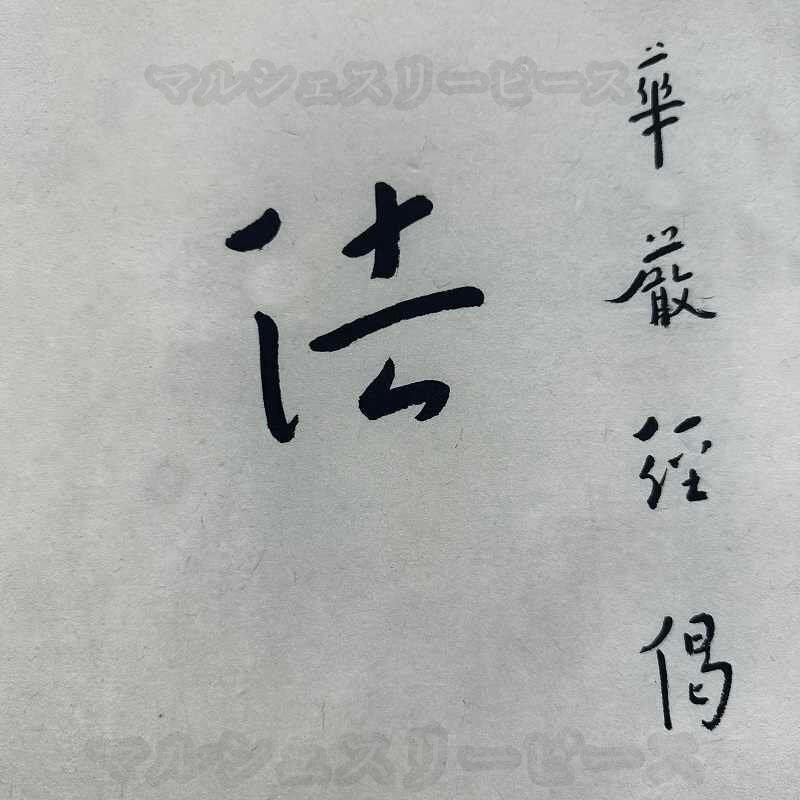 マルシェスリーピース
華嚴經偈
法
マルシェスリーピース